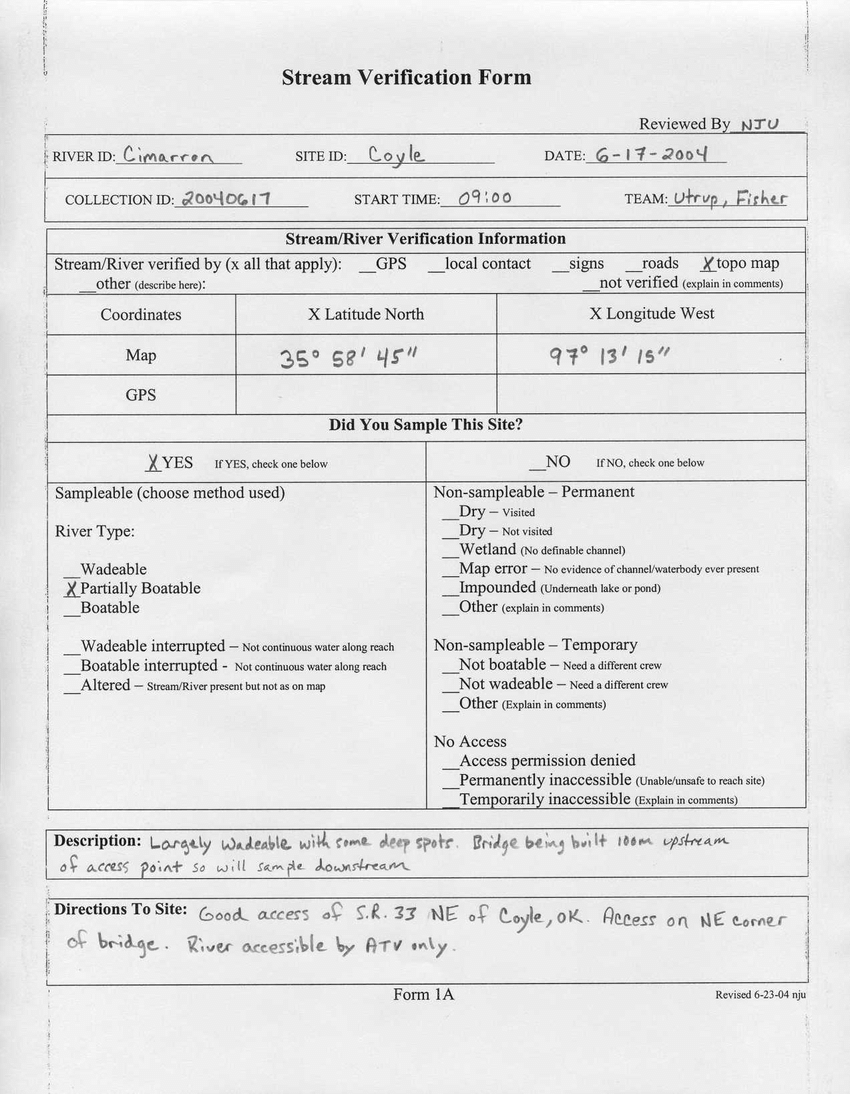 Stream Verification Form
Reviewed By NJU
RIVER ID: Cimarron SITE ID: Coyle DATE: 6-17-2004
COLLECTION ID: 20040617 START TIME: 09:00 TEAM: Utrup, Fisher
Stream/River Verification Information
Stream/River verified by (x all that apply): __GPS __local contact __signs __roads X topo map
__other (describe here): __not verified (explain in comments)
Coordinates X Latitude North X Longitude West
Map 35° 58' 45" 97° 13' 15"
GPS
Did You Sample This Site?
X YES If YES, check one below __NO If NO, check one below
Sampleable (choose method used)
River Type:
__Wadeable
X Partially Boatable
__Boatable
__Wadeable interrupted – Not continuous water along reach
__Boatable interrupted - Not continuous water along reach
__Altered – Stream/River present but not as on map
Non-sampleable – Permanent
__Dry – Visited
__Dry – Not visited
__Wetland (No definable channel)
__Map error – No evidence of channel/waterbody ever present
__Impounded (Underneath lake or pond)
__Other (explain in comments)
Non-sampleable – Temporary
__Not boatable – Need a different crew
__Not wadeable – Need a different crew
__Other (Explain in comments)
No Access
__Access permission denied
__Permanently inaccessible (Unable/unsafe to reach site)
__Temporarily inaccessible (Explain in comments)
Description: Largely wadeable with some deep spots. Bridge being built 100m upstream
of access point so will sample downstream
Directions To Site: Good access of S.R. 33 NE of Coyle, OK. Access on NE corner
of bridge. River accessible by ATV only.
Form 1A
Revised 6-23-04 nju